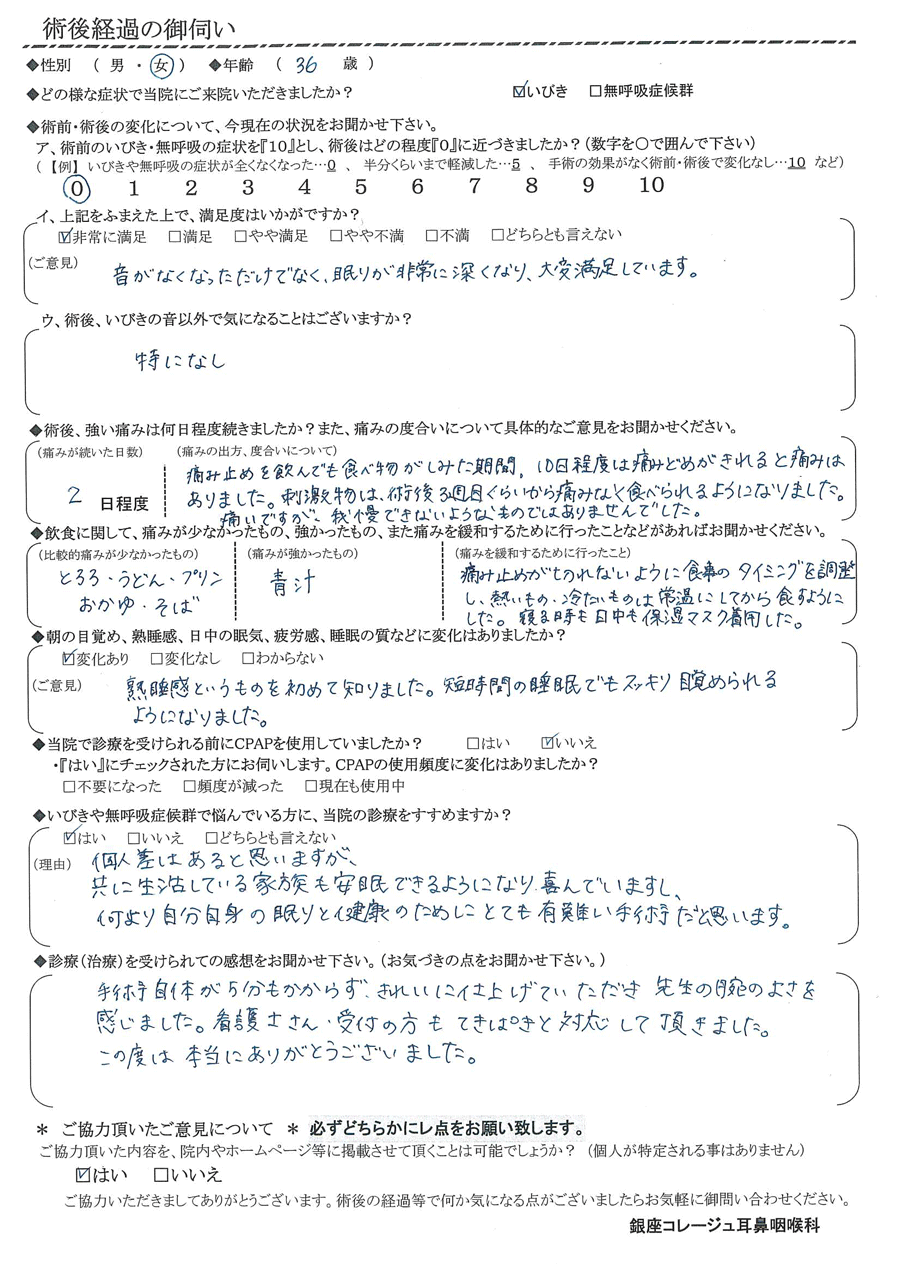 術後経過の御伺い
◆性別 （ 男 ・ 女 ） ◆年齢 （ 36 歳 ）
◆どの様な症状で当院にご来院いただきましたか？ ☑いびき □無呼吸症候群
◆術前・術後の変化について、今現在の状況をお聞かせ下さい。
ア、術前のいびき・無呼吸の症状を『10』とし、術後はどの程度『0』に近づきましたか？（数字を○で囲んで下さい）
（【例】いびきや無呼吸の症状が全くなくなった…0 、 半分くらいまで軽減した…5 、 手術の効果がなく術前・術後で変化なし…10 など）
0 1 2 3 4 5 6 7 8 9 10
イ、上記をふまえた上で、満足度はいかがですか？
☑非常に満足 □満足 □やや満足 □やや不満 □不満 □どちらとも言えない
（ご意見） 音がなくなっただけでなく、眠りが非常に深くなり、大変満足しています。
ウ、術後、いびきの音以外で気になることはございますか？
特になし
◆術後、強い痛みは何日程度続きましたか？また、痛みの度合いについて具体的なご意見をお聞かせください。
（痛みが続いた日数） （痛みの出方、度合いについて）
痛み止めを飲んでも食べ物がしみた期間，10日程度は痛みどめがきれると痛みは
2 日程度 ありました。刺激物は、術後3週目くらいから痛みなく食べられるようになりました。
痛いですが、我慢できないようなものではありませんでした。
◆飲食に関して、痛みが少なかったもの、強かったもの、また痛みを緩和するために行ったことなどがあればお聞かせください。
（比較的痛みが少なかったもの） （痛みが強かったもの） （痛みを緩和するために行ったこと）
とろろ・うどん・プリン 青汁 痛み止めがきれないように食事のタイミングを調整
おかゆ・そば し、熱いもの・冷たいものは常温にしてから食すように
した。寝る時も日中も保湿マスク着用した。
◆朝の目覚め、熟睡感、日中の眠気、疲労感、睡眠の質などに変化はありましたか？
☑変化あり □変化なし □わからない
（ご意見） 熟睡感というものを初めて知りました。短時間の睡眠でもスッキリ目覚められる
ようになりました。
◆当院で診療を受けられる前にCPAPを使用していましたか？ □はい ☑いいえ
・『はい』にチェックされた方にお伺いします。CPAPの使用頻度に変化はありましたか？
□不要になった □頻度が減った □現在も使用中
◆いびきや無呼吸症候群で悩んでいる方に、当院の診療をすすめますか？
☑はい □いいえ □どちらとも言えない
（理由） 個人差はあると思いますが、
共に生活している家族も安眠できるようになり喜んでいますし、
何より自分自身の眠りと健康のためにとても有難い手術だと思います。
◆診療（治療）を受けられての感想をお聞かせ下さい。（お気づきの点をお聞かせ下さい。）
手術自体が5分もかからず、きれいに仕上げていただき 先生の腕のよさを
感じました。看護士さん・受付の方も てきぱきと対応して頂きました。
この度は本当にありがとうございました。
＊ ご協力頂いたご意見について ＊ 必ずどちらかにレ点をお願い致します。
ご協力頂いた内容を、院内やホームページ等に掲載させて頂くことは可能でしょうか？ （個人が特定される事はありません）
☑はい □いいえ
ご協力いただきましてありがとうございます。術後の経過等で何か気になる点がございましたらお気軽に御問い合わせください。
銀座コレージュ耳鼻咽喉科